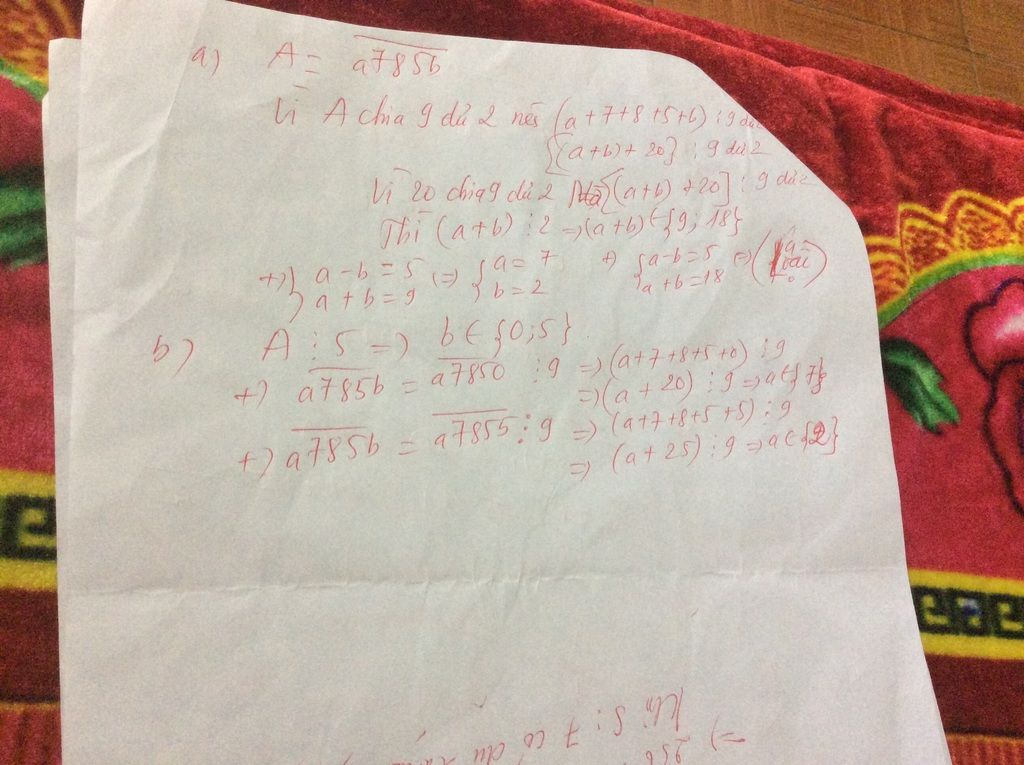 a) A = a785b
Vì A chia 9 dư 2 nên (a+7+8+5+b) ⋮ 9 dư
{(a+b)+20} ⋮ 9 dư 2
Vì 20 chia 9 dư 2 [(a+b)+20] ⋮ 9 dư 2
Thì (a+b) ⋮ 2 => (a+b) ∈ {9; 18}
+) { a-b = 5 a+b = 9 => { a = 7 b = 2 +) { a-b = 5 a+b = 18 => (loại)
b) A ⋮ 5 => b ∈ {0;5}
+) a785b = a7850 ⋮ 9 => (a+7+8+5+0) ⋮ 9
=> (a+20) ⋮ 9 => a ∈ {7}
+) a785b = a7855 ⋮ 9 => (a+7+8+5+5) ⋮ 9
=> (a+25) ⋮ 9 => a ∈ {2}
=> 256
Khi 5 : 7 có dư